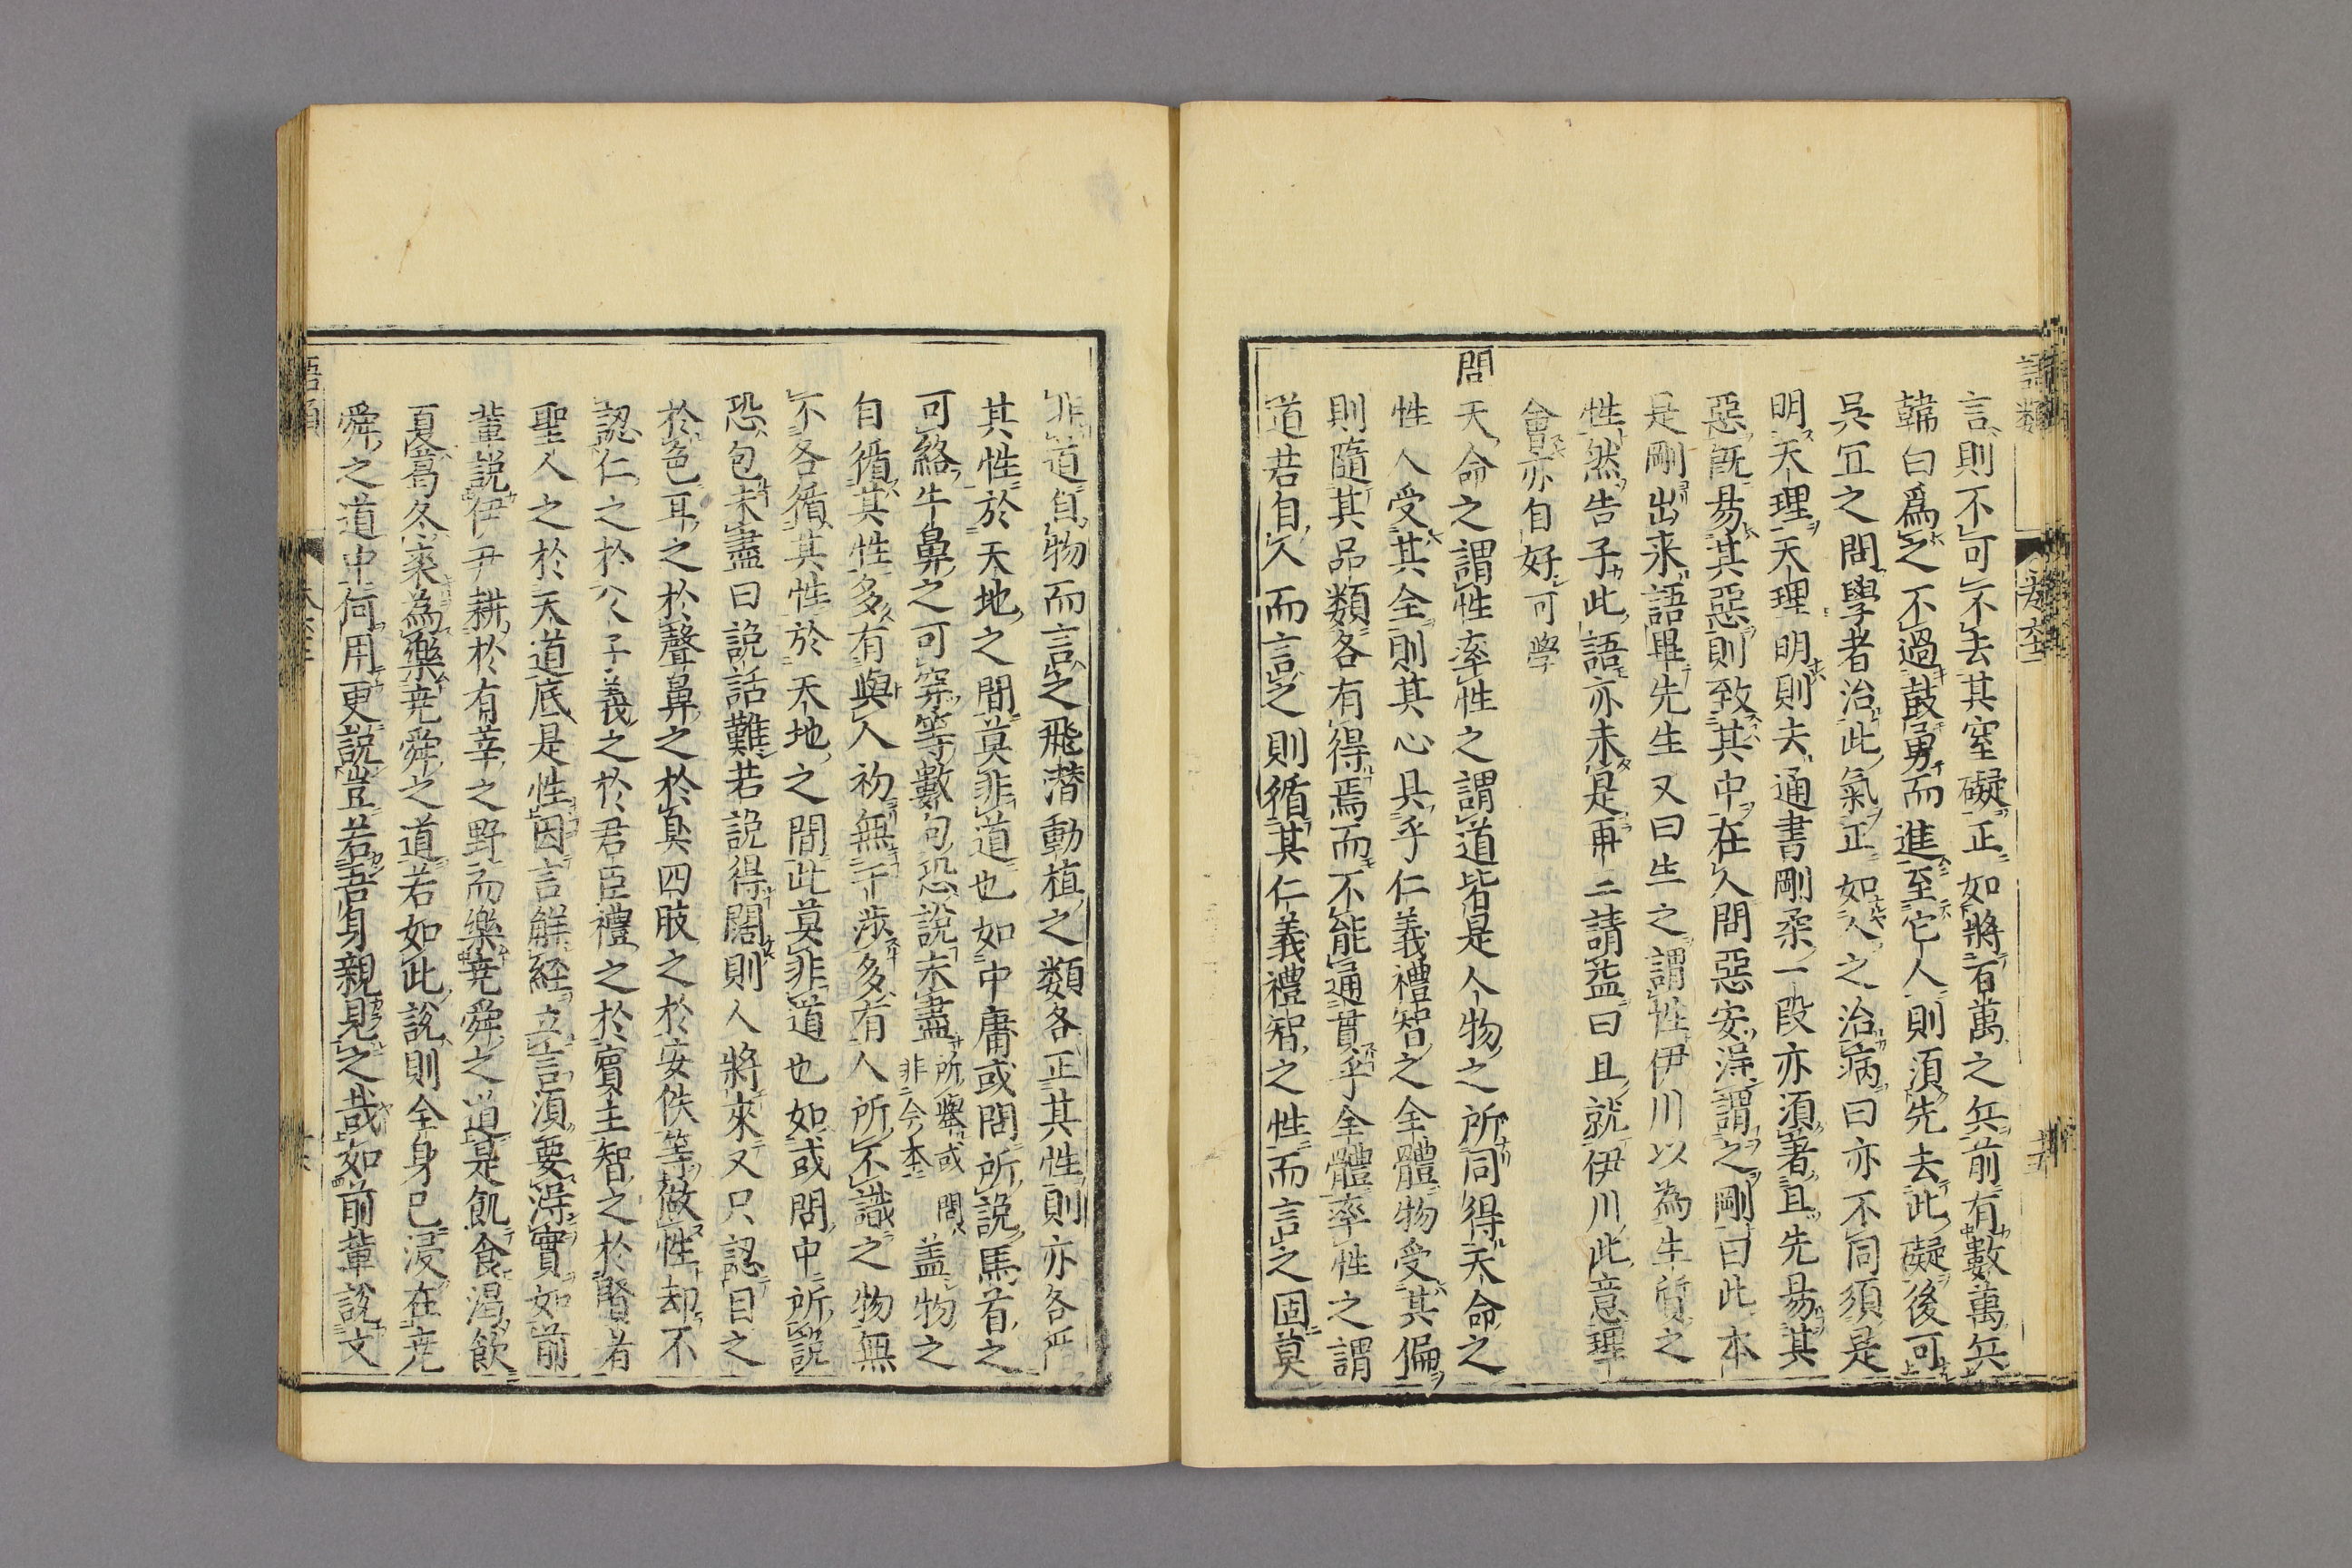 語類
言則不可不去其窒礙正如將百萬之兵前有數萬兵
韓白爲之不過鼓勇而進至它人則須先去此礙後可
吳冝之問學者治此氣正如人之治病曰亦不同須是
明天理天理明則去通書剛柔一段亦須著且先易其
惡旣易其惡則致其中在人問惡安得謂之剛曰此本
是剛出來語畢先生又曰生之謂性伊川以為生質之
性然告子此語亦未是再三請益曰且就伊川此意理
會亦自好可學
問天命之謂性率性之謂道皆是人物之所同得天命之
性人受其全則其心具乎仁義禮智之全體物受其偏
則隨其品類各有得焉而不能通貫乎全體率性之謂
道若自人而言之則循其仁義禮智之性而言之固莫
非道自物而言之飛潜動植之類各正其性則亦各循
其性於天地之間莫非道也如中庸或問所說馬首之
可絡牛鼻之可穿等數句恐說未盡所舉或問非今本盖物之
自循其性多有與人初無干渉多有人所不識之物無
不各循其性於天地之間此莫非道也如或問中所說
恐包未盡曰說話難若說得闊則人將來又只認目之
於色耳之於聲鼻之於臭四肢之於安佚等做性却不
認仁之於父子義之於君臣禮之於賓主智之於賢者
聖人之於天道底是性因言觧経立言須要得實如前
輩説伊尹耕於有莘之野而樂堯舜之道是飢食渴飲
夏葛冬裘為樂堯舜之道若如此說則全身已浸在堯
舜之道中何用更說豈若吾身親見之哉如前輩說文